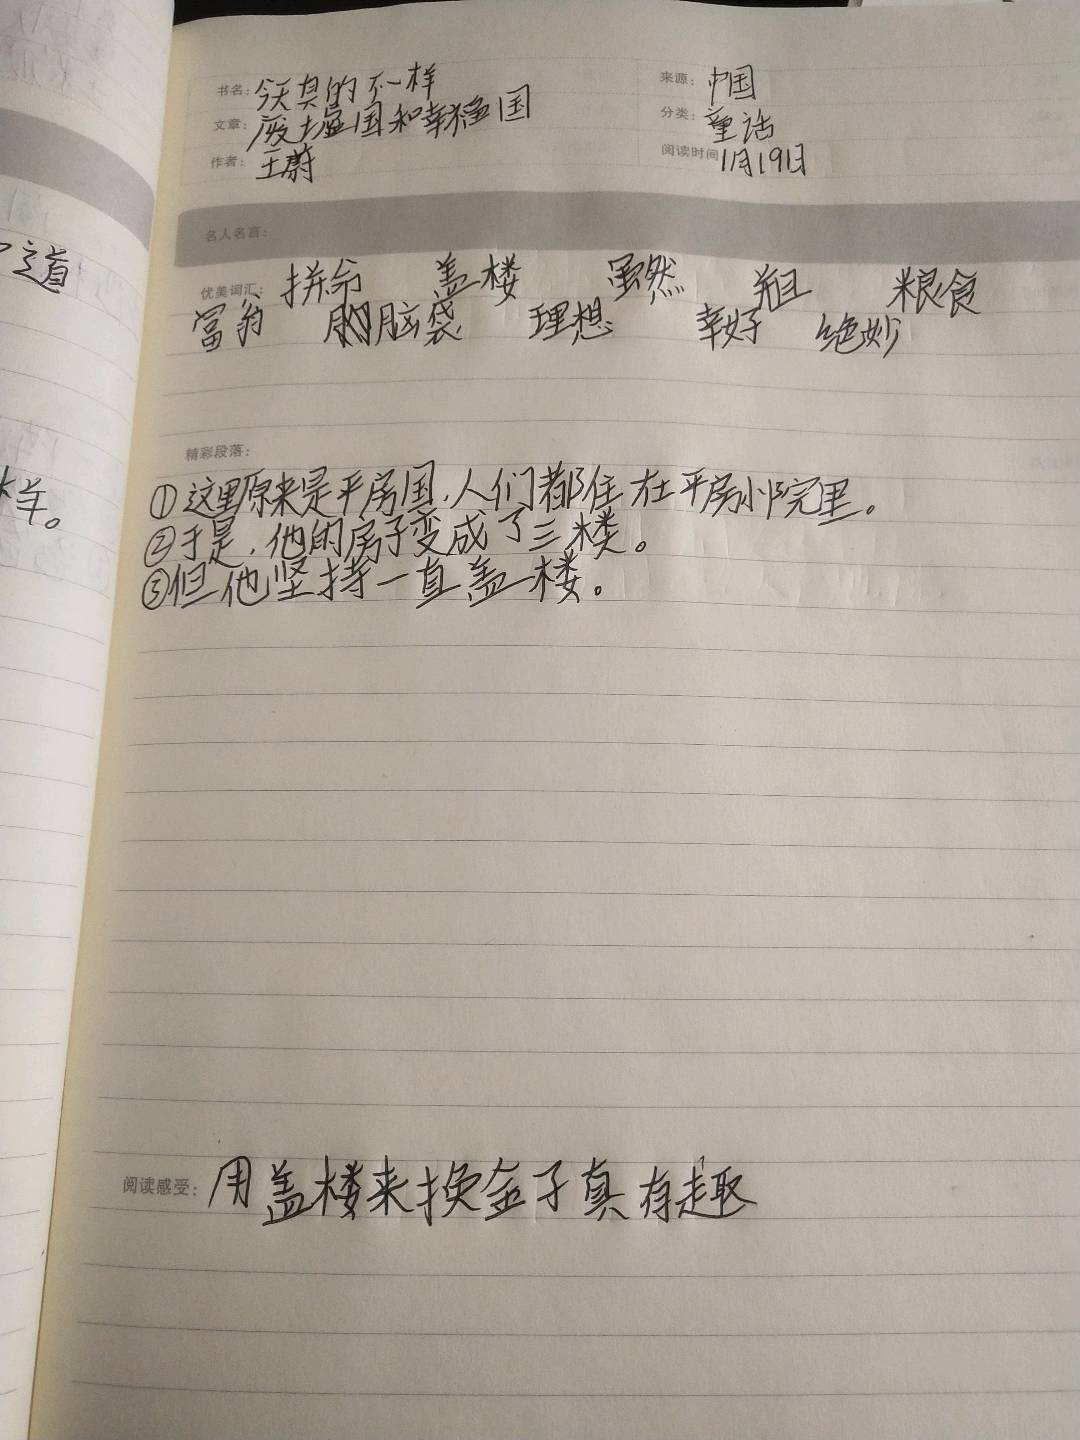 书名：今天真的不一样
来源：中国
文章：废墟国和幸福国
分类：童话
作者：王蔚
阅读时间 11月19日
名人名言：
优美词汇：拼命 盖楼 虽然 粮食
富翁 脑袋 理想 幸好 绝妙
精彩段落：
①这里原来是平房国，人们都住在平房小院里。
②于是，他的房子变成了三楼。
③但他坚持一直盖楼。
阅读感受：用盖楼来换金子真有趣
之道
样。